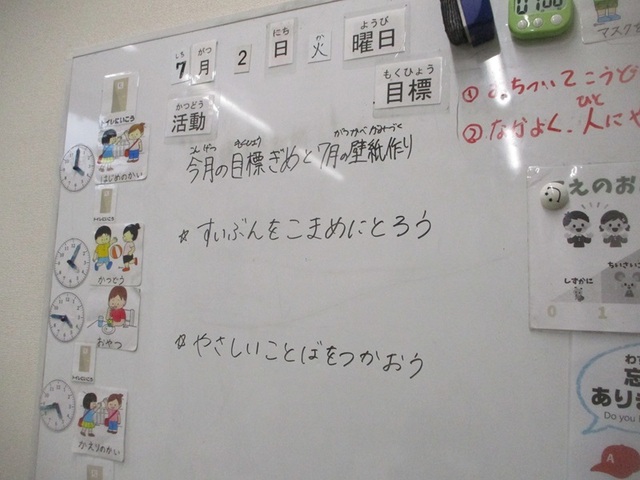 7月2日火曜日
いち がつ にち か ようび
もくひょう
目標
かつどう
活動
今月の目標ぎめと7月の壁紙作り
☆すいぶんをこまめにとろう
☆やさしいことばをつかおう
トイレにいこう
はじめのかい
トイレにいこう
かつどう
おやつ
トイレにいこう
かえりのかい
①おちついてこうど
ひと
②なかよく、人にや
マスクを
えのお
ちいさいこ
しずかに
0 1
わす
忘
ありま
Do you
A